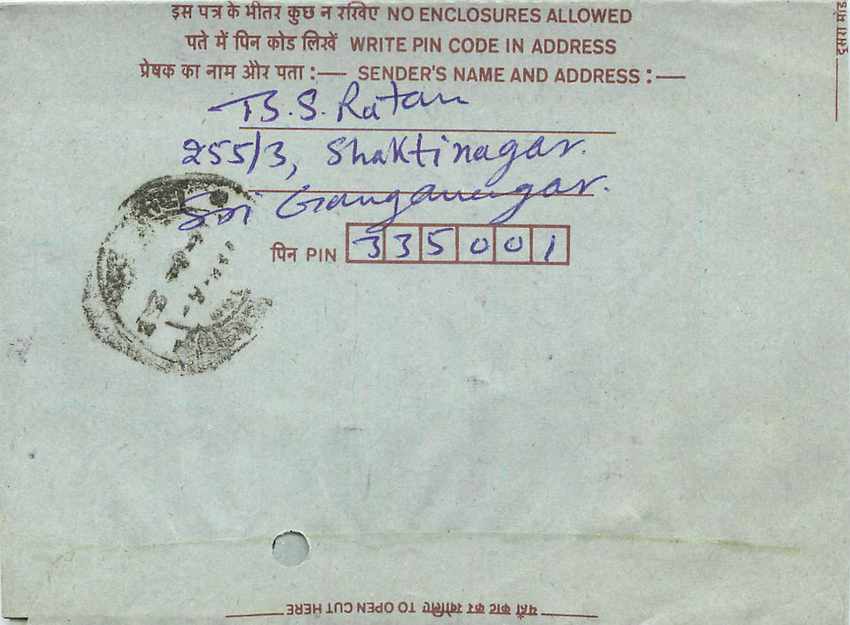 इस पत्र के भीतर कुछ न रखिए NO ENCLOSURES ALLOWED
पते में पिन कोड लिखें WRITE PIN CODE IN ADDRESS
प्रेषक का नाम और पता :— SENDER'S NAME AND ADDRESS :—
B.S. Ratan
255/3, Shaktinagar.
Sri Ganganagar.
पिन PIN 335001
दूसरा मोड़
यहाँ काट कर खोलिए TO OPEN CUT HERE